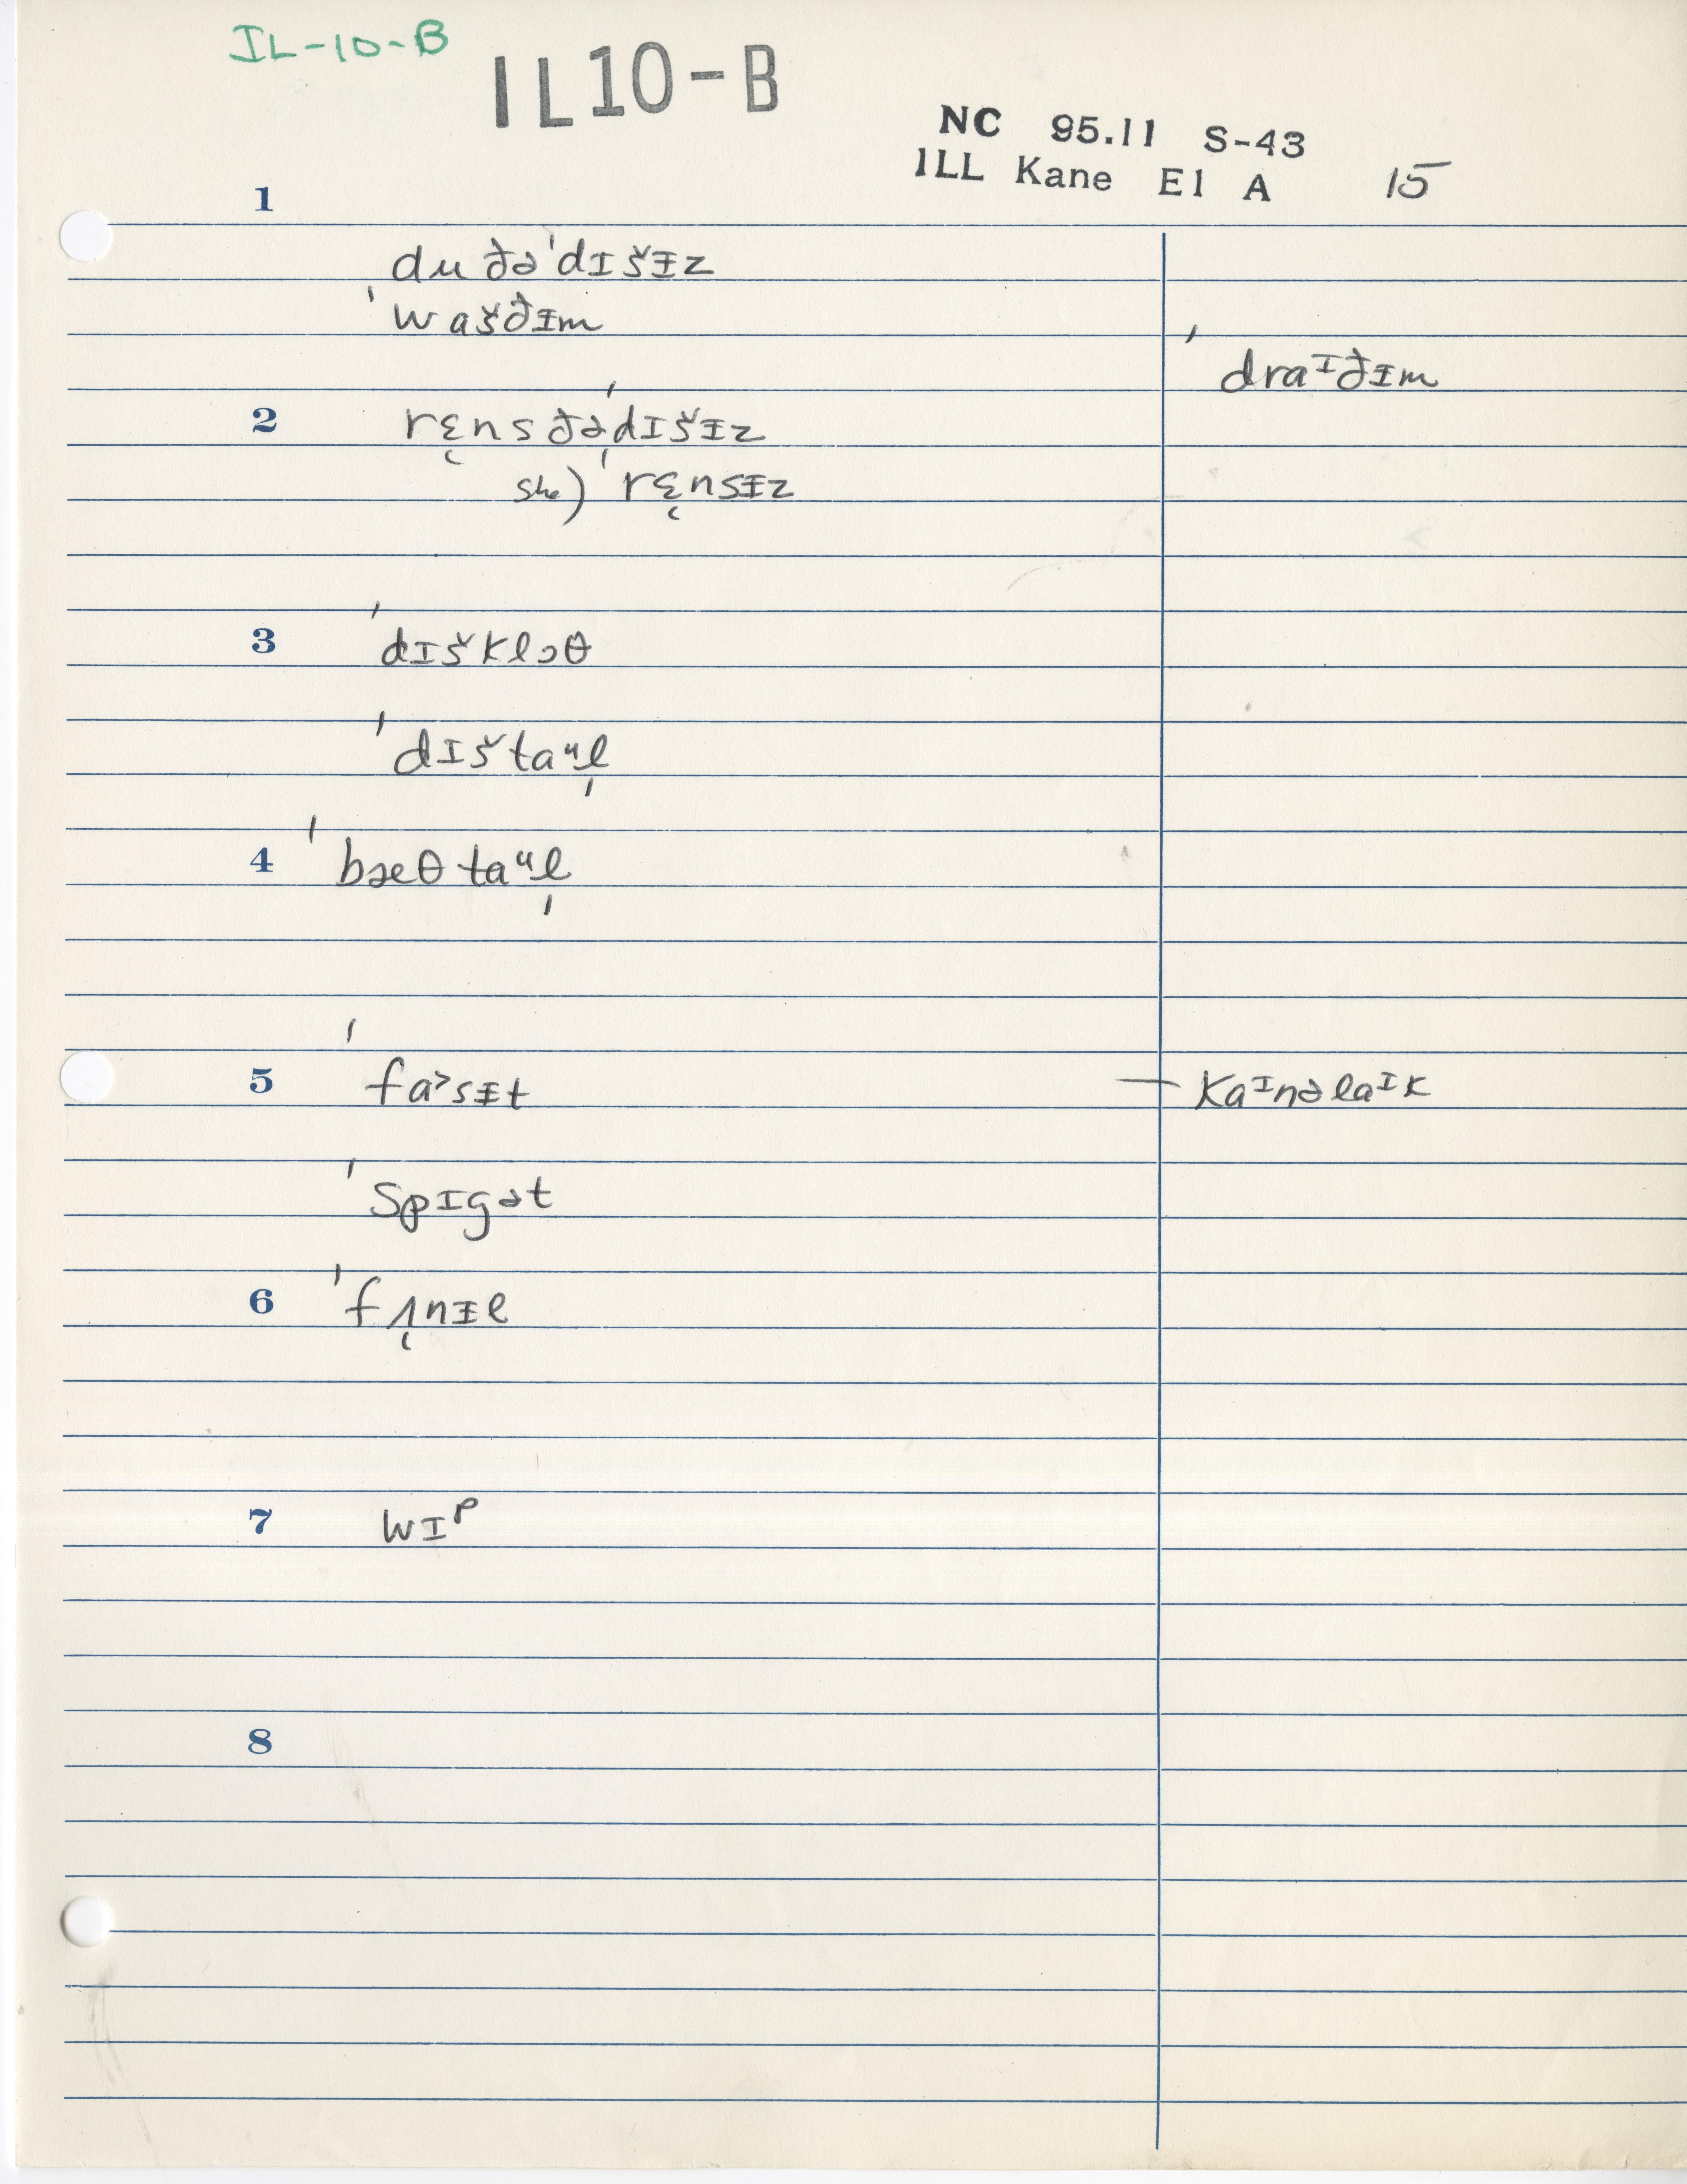 IL-10-B
IL10-B
NC 95.11 S-43
ILL Kane El A 15
1
du ðə ˈdɪšɨz
ˈwašðɨm
ˈdraᴵðɨm
2 rɛ̨ns ðə ˈdɪšɨz
she) ˈrɛ̨nsɨz
3 ˈdɪšklɔθ
ˈdɪštaᵘl̩
4 ˈbæθtaᵘl̩
5 ˈfa˃sɨt — kaᴵnəlaᴵk
ˈspɪgət
6 ˈfʌ̨nɨl
7 wɪᵖ
8